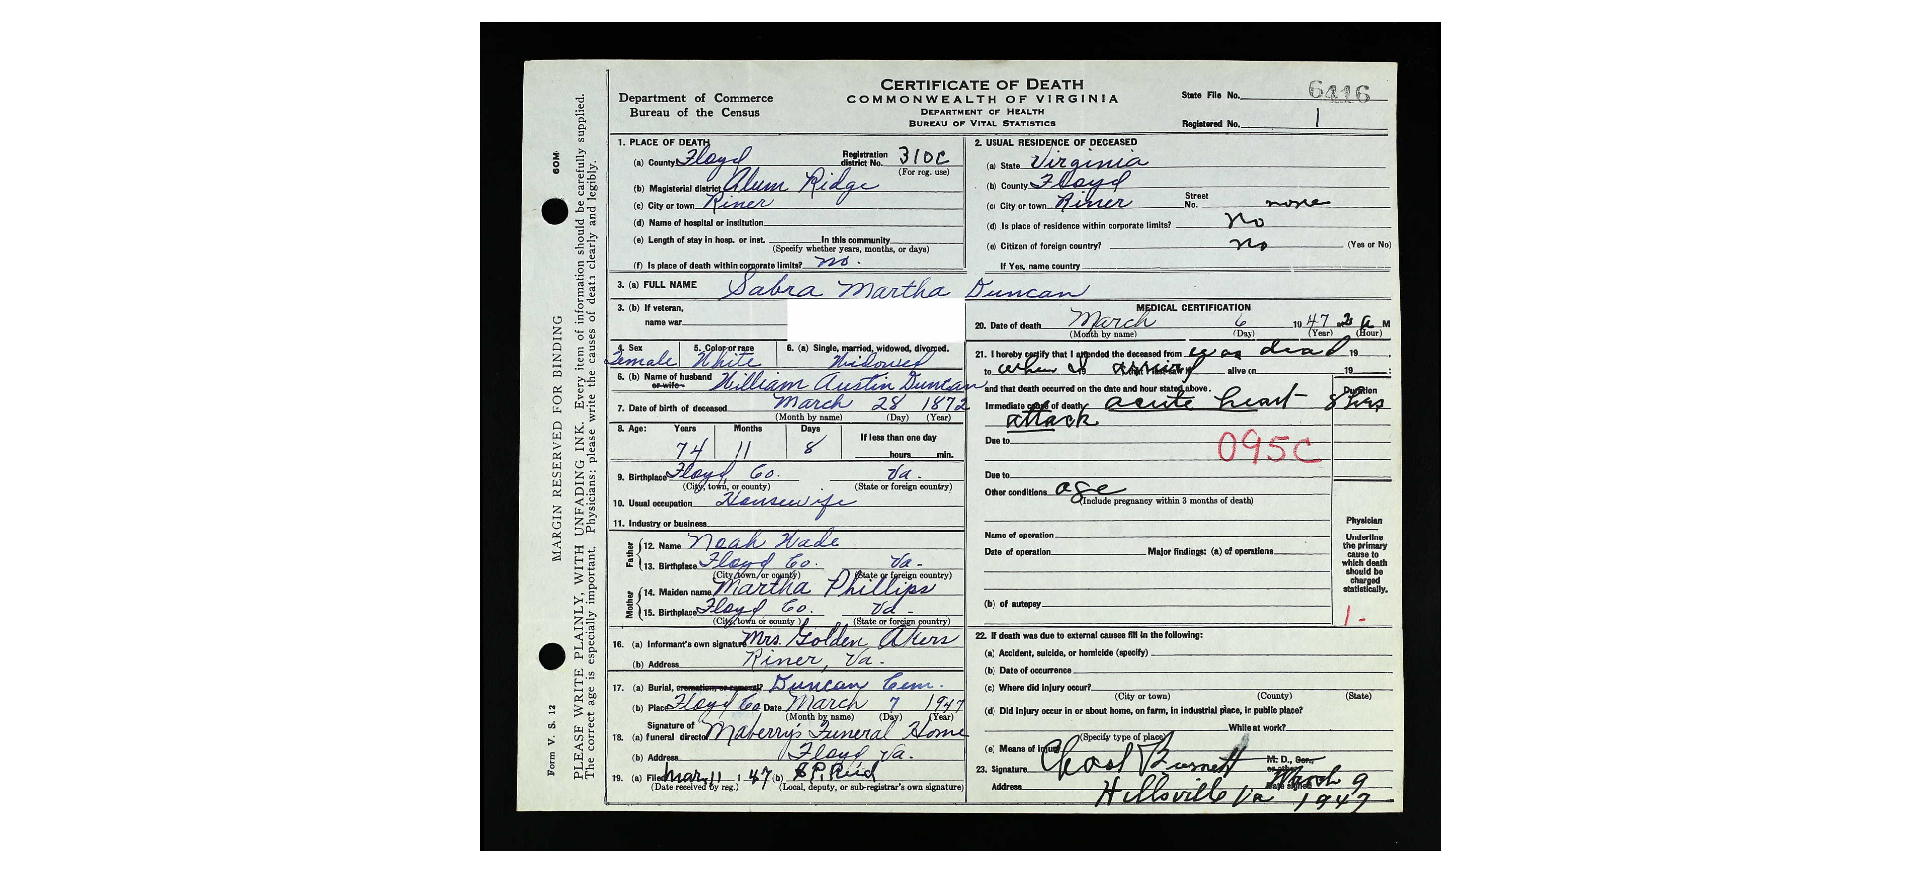 CERTIFICATE OF DEATH
COMMONWEALTH OF VIRGINIA
DEPARTMENT OF HEALTH
BUREAU OF VITAL STATISTICS
Department of Commerce
Bureau of the Census
State File No. 6416
Registered No. 1
60M
MARGIN RESERVED FOR BINDING
Form V. S. 12
PLEASE WRITE PLAINLY, WITH UNFADING INK. Every item of information should be carefully supplied.
The correct age is especially important. Physicians: please write the causes of death clearly and legibly.
1. PLACE OF DEATH
(a) County Floyd Registration district No. 310C
(For reg. use)
(b) Magisterial district Alum Ridge
(c) City or town Riner
(d) Name of hospital or institution
(e) Length of stay in hosp. or inst. In this community
(Specify whether years, months, or days)
(f) Is place of death within corporate limits? no.
2. USUAL RESIDENCE OF DECEASED
(a) State Virginia
(b) County Floyd
(c) City or town Riner Street No. none
(d) Is place of residence within corporate limits? No
(e) Citizen of foreign country? no (Yes or No)
If Yes, name country
3. (a) FULL NAME Sabra Martha Duncan
3. (b) If veteran,
name war
4. Sex Female 5. Color or race White 6. (a) Single, married, widowed, divorced. Widowed
6. (b) Name of husband or wife William Austin Duncan
7. Date of birth of deceased March 28 1872
(Month by name) (Day) (Year)
8. Age: Years Months Days If less than one day
74 11 8 hours min.
9. Birthplace Floyd Co. Va.
(City, town, or county) (State or foreign country)
10. Usual occupation Housewife
11. Industry or business
Father
12. Name Noah Wade
13. Birthplace Floyd Co. Va.
(City, town, or county) (State or foreign country)
Mother
14. Maiden name Martha Phillips
15. Birthplace Floyd Co. Va.
(City, town or county) (State or foreign country)
16. (a) Informant's own signature Mrs. Golden Akers
(b) Address Riner, Va.
17. (a) Burial, cremation, or removal? Duncan Cem.
(b) Place Floyd Co Date March 7 1947
(Month by name) (Day) (Year)
18. (a) Signature of funeral director Maberry's Funeral Home
(b) Address Floyd Va.
19. (a) Filed Mar 11 1947 (b) S P. Reid
(Date received by reg.) (Local, deputy, or sub-registrar's own signature)
MEDICAL CERTIFICATION
20. Date of death March 6 1947 at 2 a M
(Month by name) (Day) (Year) (Hour)
21. I hereby certify that I attended the deceased from was dead 19
to when I alive on 19
and that death occurred on the date and hour stated above. Duration
Immediate cause of death acute heart 8 hrs
attack
Due to 095C
Due to
Other conditions age
(Include pregnancy within 3 months of death)
Name of operation
Date of operation Major findings: (a) of operations
(b) of autopsy
Physician
Underline
the primary
cause to
which death
should be
charged
statistically.
1-
22. If death was due to external causes fill in the following:
(a) Accident, suicide, or homicide (specify)
(b) Date of occurrence
(c) Where did injury occur?
(City or town) (County) (State)
(d) Did injury occur in or about home, on farm, in industrial place, in public place?
While at work?
(Specify type of place)
(e) Means of injury
23. Signature Burnett M. D.,
Address Hillsville Va Date signed March 9
1947